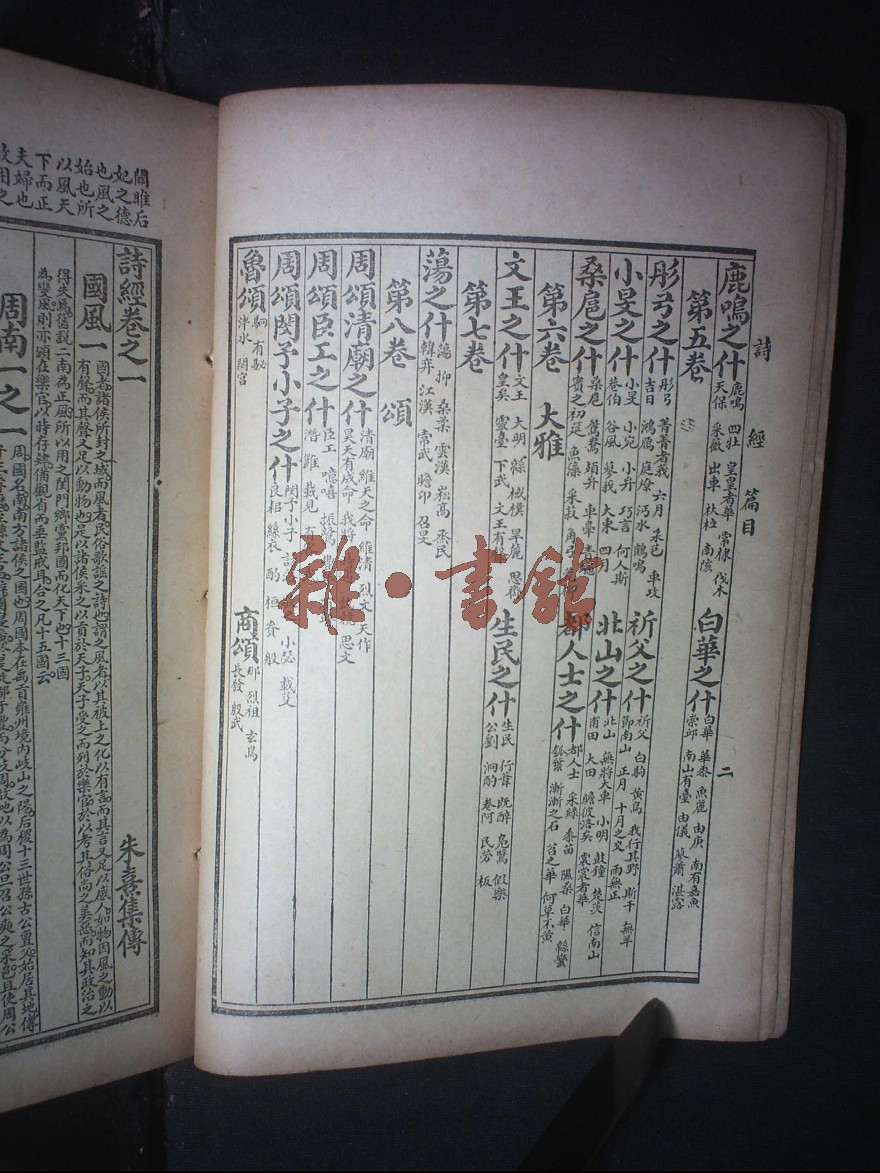 詩經 篇目 二
鹿鳴之什 鹿鳴 四牡 皇皇者華 常棣 伐木
天保 采薇 出車 杕杜 南陔
白華之什 白華 華黍 魚麗 由庚 南有嘉魚
崇邱 南山有臺 由儀 蓼蕭 湛露
第五卷
彤弓之什 彤弓 菁菁者莪 六月 采芑 車攻
吉日 鴻鴈 庭燎 沔水 鶴鳴
祈父之什 祈父 白駒 黃鳥 我行其野 斯干 無羊
節南山 正月 十月之交 雨無正
小旻之什 小旻 小宛 小弁 巧言 何人斯
巷伯 谷風 蓼莪 大東 四月
北山之什 北山 無將大車 小明 鼓鐘 楚茨 信南山
甫田 大田 瞻彼洛矣 裳裳者華
桑扈之什 桑扈 鴛鴦 頍弁 車舝 青蠅
賓之初筵 魚藻 采菽 角弓
都人士之什 都人士 采綠 黍苗 隰桑 白華 緜蠻
瓠葉 漸漸之石 苕之華 何草不黃
第六卷 大雅
文王之什 文王 大明 緜 棫樸 旱麓 思齊
皇矣 靈臺 下武 文王有聲
生民之什 生民 行葦 既醉 鳧鷖 假樂
公劉 泂酌 卷阿 民勞 板
第七卷
蕩之什 蕩 抑 桑柔 雲漢 崧高 烝民
韓奕 江漢 常武 瞻卬 召旻
第八卷 頌
周頌清廟之什 清廟 維天之命 維清 烈文 天作
昊天有成命 我將 思文
周頌臣工之什 臣工 噫嘻 振鷺
潛 雝 載見
周頌閔予小子之什 閔予小子 小毖 載芟
良耜 絲衣 酌 桓 賚 般
魯頌 駉 有駜
泮水 閟宮
商頌 那 烈祖 玄鳥
長發 殷武
雜·書館
關雎后
妃之德
也風之
始也所
以風天
下而正
夫婦也
故用之
詩經卷之一
朱熹集傳
國風一 國者諸侯所封之域而風者民俗歌謠之詩也謂之風者以其被上之化以有言而其言又足以感人如物因風之動以
有聲而其聲又足以動物也是以諸侯采之以貢於天子天子受之而列於樂官於以考其俗尚之美惡而知其政治之
得失焉舊說二南為正風所以用之閨門鄉黨邦國而化天下也十三國
為變風則亦領在樂官以時存肄備觀省而垂監戒耳合之凡十五國云
周南一之一 周國名南南方諸侯之國也周國本在禹貢雍州境內岐山之陽后稷十三世孫古公亶父始居其地傳